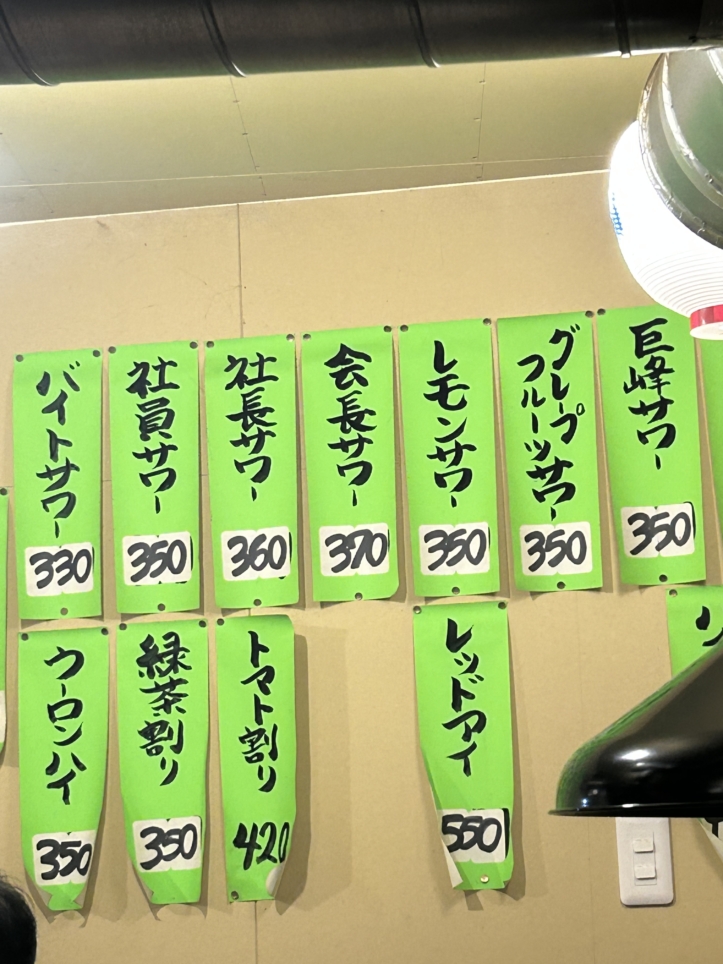 バイトサワー
330
社員サワー
350
社長サワー
360
会長サワー
370
レモンサワー
350
グレープ
フルーツサワー
350
巨峰サワー
350
ウーロンハイ
350
緑茶割り
350
トマト割り
420
レッドアイ
550